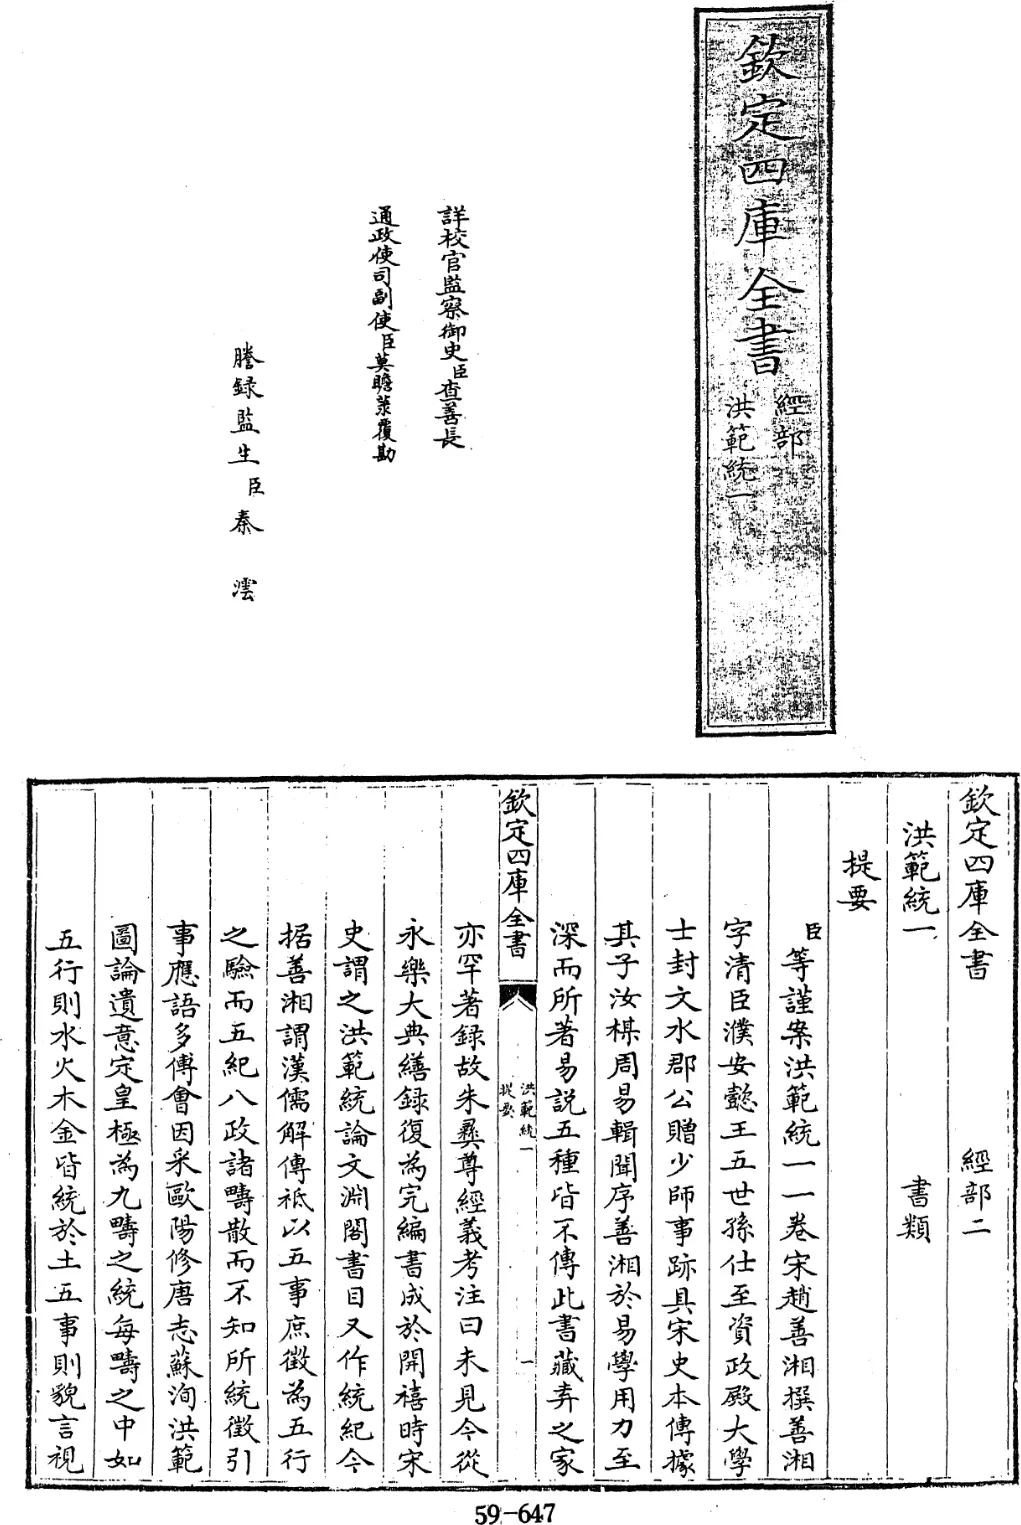 欽定四庫全書
經部
洪範統一
詳校官監察御史臣查善長
通政使司副使臣莫瞻菉覆勘
謄録監生臣秦澐
欽定四庫全書 經部二
洪範統一 書類
提要
臣等謹案洪範統一一卷宋趙善湘撰善湘
字清臣濮安懿王五世孫仕至資政殿大學
士封文水郡公贈少師事跡具宋史本傳據
其子汝楳周易輯聞序善湘於易學用力至
深而所著易説五種皆不傳此書藏弆之家
欽定四庫全書
洪範統一
提要
一
亦罕著録故朱彝尊經義考注曰未見今從
永樂大典繕録復為完編書成於開禧時宋
史謂之洪範統論文淵閣書目又作統紀今
据善湘謂漢儒解傳袛以五事庶徵為五行
之驗而五紀八政諸疇散而不知所統徵引
事應語多傅會因采歐陽修唐志蘇洵洪範
圖論遺意定皇極為九疇之統每疇之中如
五行則水火木金皆統於土五事則貌言視
59-647